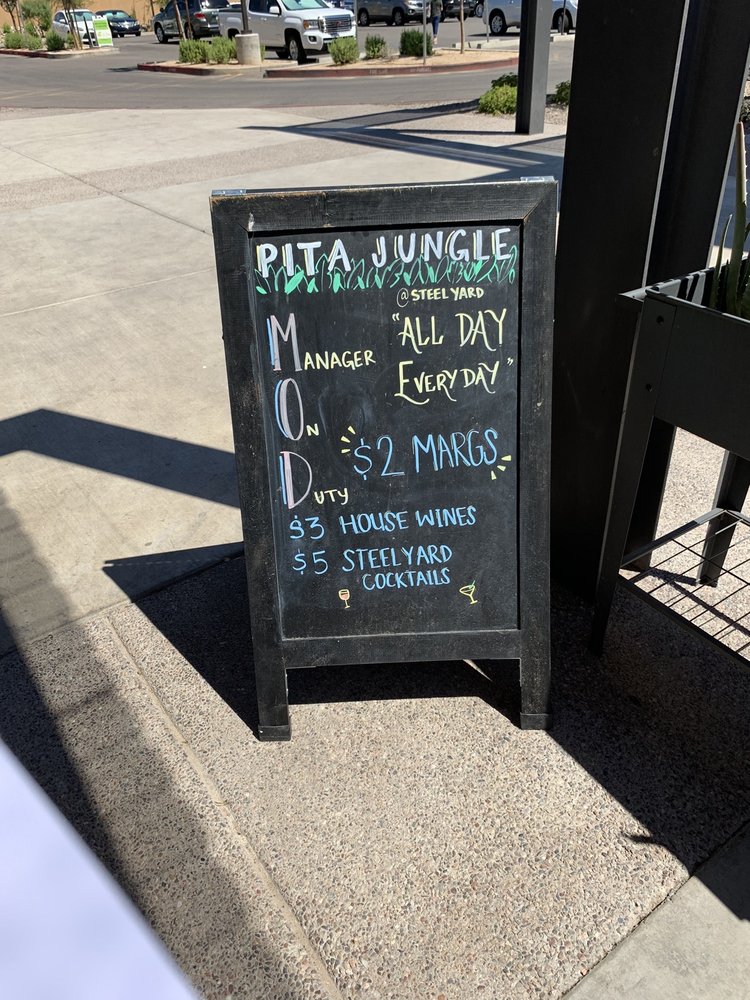 PITA JUNGLE
@STEELYARD
MANAGER
ON
DUTY
"ALL DAY
EVERYDAY"
$2 MARGS
$3 HOUSE WINES
$5 STEELYARD
COCKTAILS